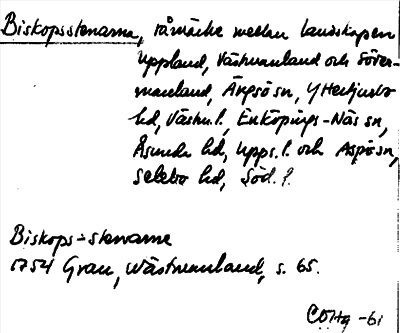 Biskopsstenarna, råmärke mellan landskapen
Uppland, Västmanland och Söder-
manland, Ängsö sn, Ytterjurbo
hd, Västm. l., Enköpings-Näs sn,
Åsunda hd, Upps. l. och Aspö sn,
Selebo hd, Söd. l.
Biskops-stenarne
1754 Grau, Wästmanland, s. 65.
COHg -61